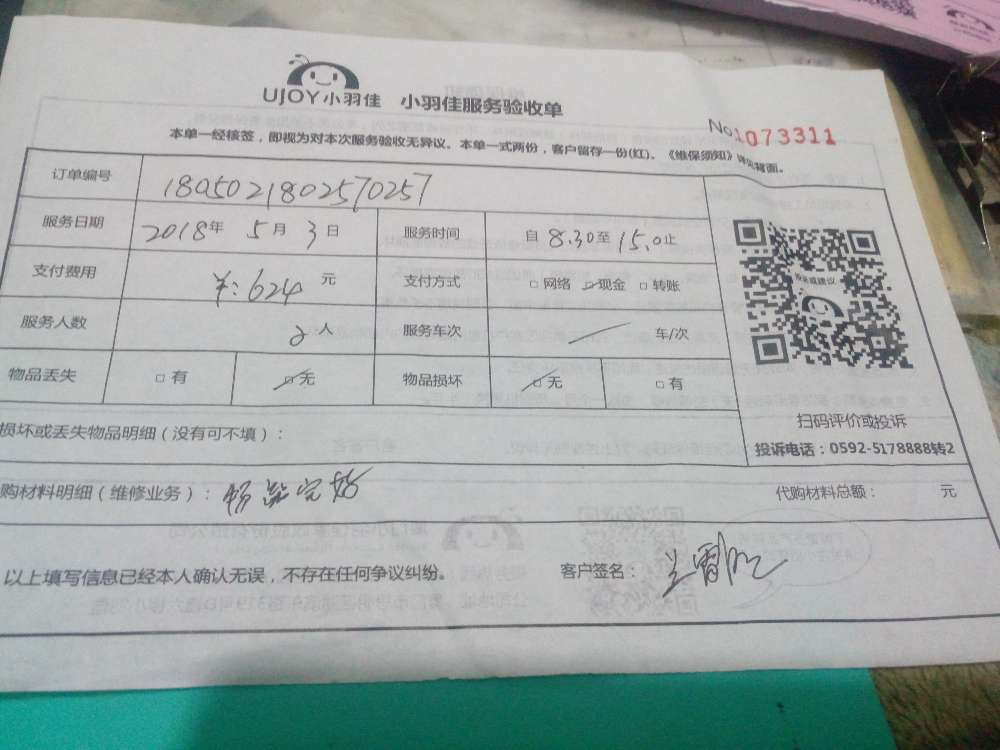 UJOY小羽佳 小羽佳服务验收单
No 1073311
本单一经核签，即视为对本次服务验收无异议。本单一式两份，客户留存一份(红)。《维保须知》详见背面。
订单编号 1805021802570257
服务日期 2018年 5月 3日 服务时间 自 8.30至 15.0止
支付费用 ￥: 624 元 支付方式 □网络 □现金 □转账
服务人数 2人 服务车次 车/次
物品丢失 □有 □无 物品损坏 □无 □有
扫码评价或投诉
损坏或丢失物品明细（没有可不填）：
投诉电话：0592-5178888转2
购材料明细（维修业务）：物品完好 代购材料总额： 元
以上填写信息已经本人确认无误，不存在任何争议纠纷。 客户签名：